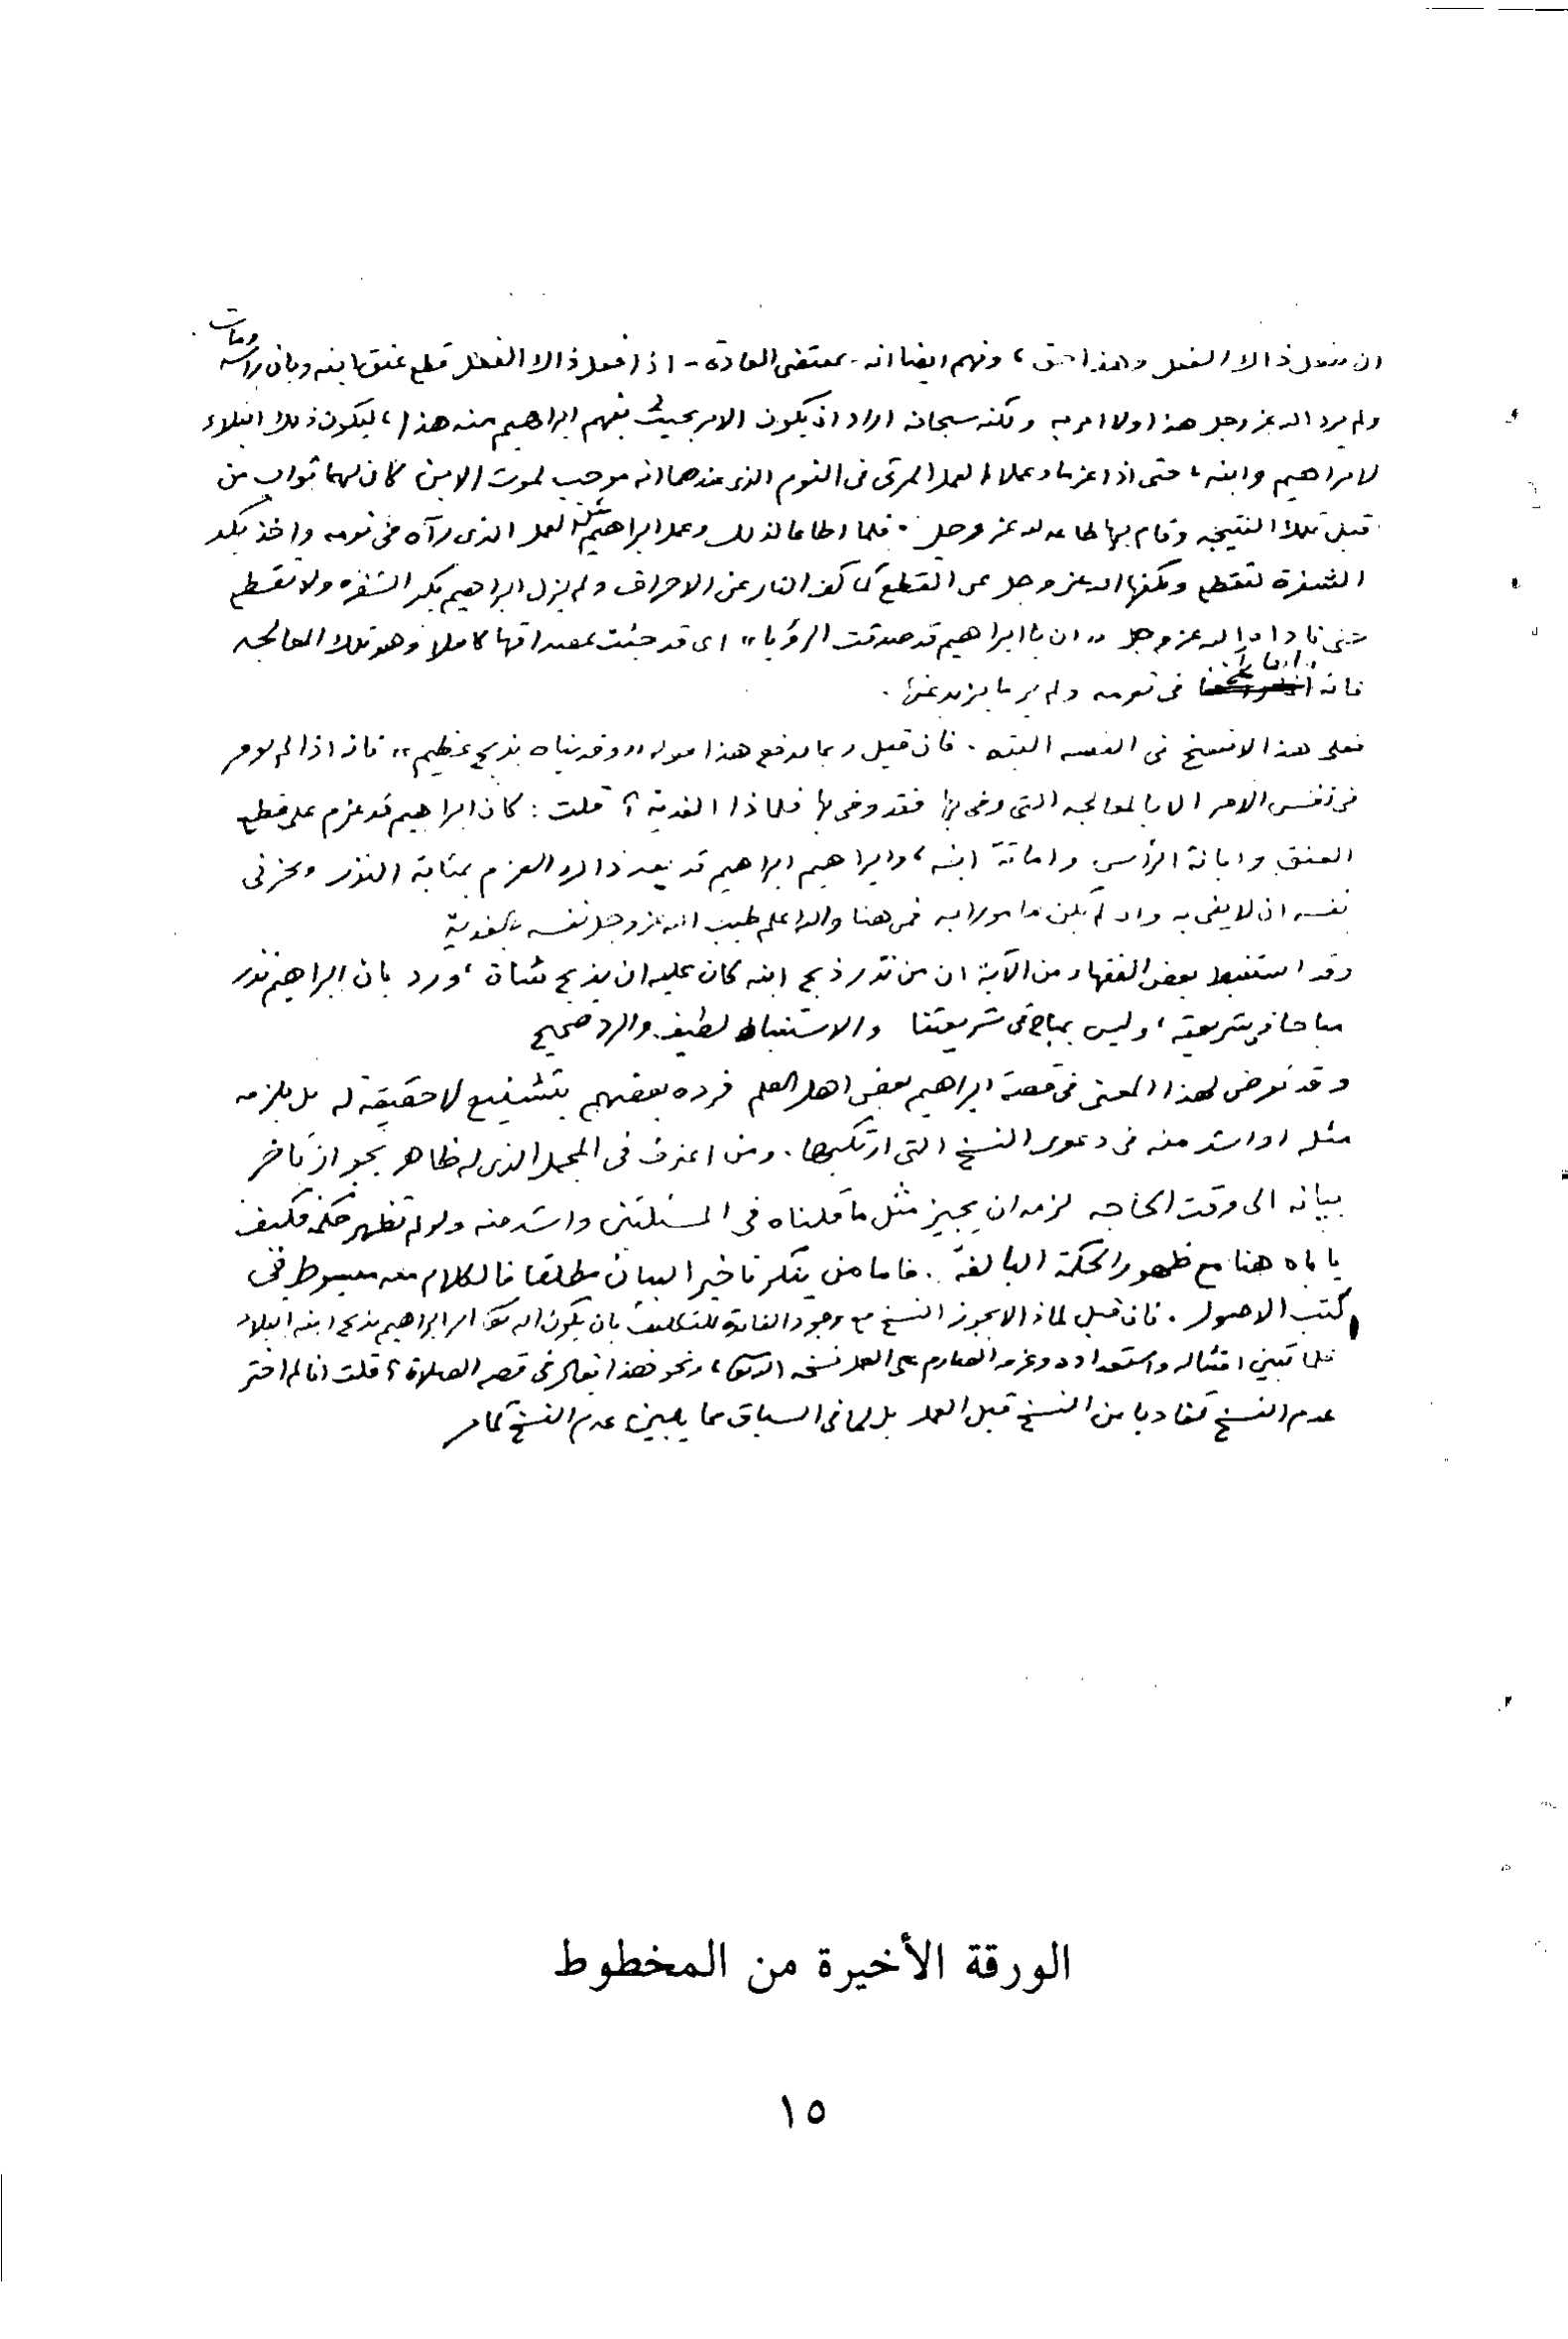 ان يفعل ذالك الفعل وهذا حق ، وفهم ايضا انه - بمقتضى العادة - اذا فعل ذالك الفعل قطع عنق ابنه وبان رأسه ومات
ولم يرد الله عز وجل هذا ولا امر به ولكنه سبحانه اراد ان يكون الامر بحيث يفهم ابراهيم منه هذا ، ليكون ذلك ابتلاء
لابراهيم وابنه ، حتى اذا عزما وعملا العمل المرئي في النوم الذي عندهما انه موجب لموت الابن كان لهما ثواب من
قبل تلك النتيجه وقام بها طاعه لله عز وجل . فلما اطاعا لذلك وعمل ابراهيم مثل العمل الذي رآه في نومه واخذ يكد
الشفرة لتقطع وكفها الله عز وجل عن القطع كما كف النار عن الاحراق ولم يزل ابراهيم يكد الشفره ولا تقطع
حتى ناداه الله عز وجل " ان يا ابراهيم قد صدقت الرؤيا " اى قد جئت بمصداقها كاملا وهو تلك المعالجه
فانه انما رآها في نومه ولم ير ما يزيد عنها .
فعلى هذا لا نسخ في القصه البته . فان قيل ربما يدفع هذا قوله " وفديناه بذبح عظيم " فانه اذا لم يؤمر
في نفس الامر الا بالمعالجه التي وفى بها فقد وفى بها فلماذا الفدية ؟ قلت : كان ابراهيم قد عزم على قطع
العنق وابانة الرأس واماتة ابنه ، وابراهيم ابراهيم قد يعد ذالك العزم بمثابة النذر ويحز في
نفسه ان لا يفى به وان لم يكن مأمورا به فمن هنا والله اعلم طيب الله عز وجل نفسه بالفدية
وقد استنبط بعض الفقهاء من الآية ان من نذر ذبح ابنه كان عليه ان يذبح شاة ، ورد بان ابراهيم نذر
مباحا في شريعته ، وليس بمباح في شريعتنا والاستنباط لطيف والرد صحيح
وقد تعرض لهذا المعنى في قصة ابراهيم بعض اهل العلم فرده بعضهم بتشنيع لا حقيقة له بل يلزمه
مثله او اشد منه في دعوى النسخ التي ارتكبها . ومن اعترف في المجمل الذي له ظاهر بجواز تأخر
بيانه الى وقت الحاجه لزمه ان يجيز مثل ما قلناه في المسئلتين واشد منه ولو لم تظهر حكمه فكيف
ياباه هنا مع ظهور الحكمة البالغة . فاما من ينكر تاخير البيان مطلقا فالكلام معه مبسوط في
كتب الاصول . فان قيل لماذا لا يجوز النسخ مع وجود الفائدة للتكليف بان يكون الله تعالى امر ابراهيم بذبح ابنه ابتلاء
فلما تبين امتثاله واستعداده وعزمه الصارم على العمل نسخه الله تعالى ، ونحو هذا يقال في قصر الصلاة ؟ قلت انا لم اختر
عدم النسخ تفاديا من النسخ قبل العمل بل لما في السياق مما يبين عدم النسخ كما مر
الورقة الأخيرة من المخطوط
١٥